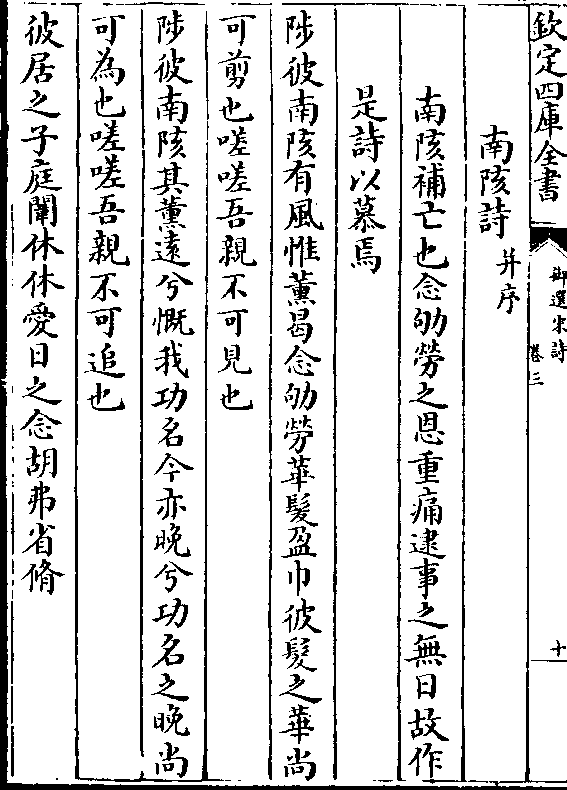 欽定四庫全書
御選宋詩
卷三
十
南陔詩
并序
南陔補亡也念劬勞之恩重痛逮事之無日故作
是詩以慕焉
陟彼南陔有風惟薰曷念劬勞華髮盈巾彼髮之華尚
可剪也嗟嗟吾親不可見也
陟彼南陔其薰遠兮慨我功名今亦晚兮功名之晚尚
可為也嗟嗟吾親不可追也
彼居之子庭闈休休愛日之念胡弗省脩